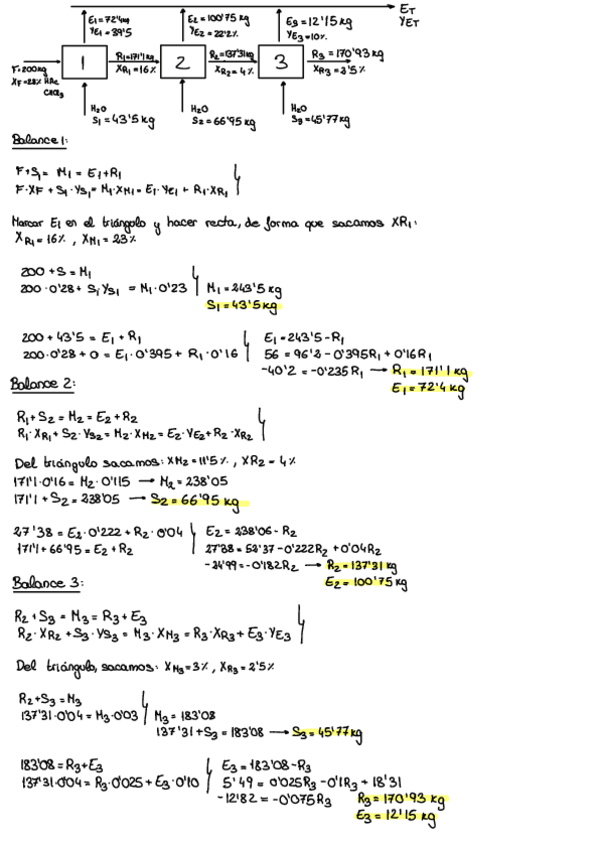 E1=72'4kg
YE1=39'5
E2=100'75 kg
YE2=22'2%
E3=12'15 kg
YE3=10%
ET
YET
F=200kg
XF=28% HAc
1
R1=171'1kg
XR1=16%
2
R2=137'31kg
XR2=4%
3
R3=170'93 kg
XR3=2'5%
H2O
S1=43'5kg
H2O
S2=66'95 kg
H2O
S3=45'77kg
Balance 1:
F+S1= M1 = E1+R1
F·XF + S1·YS1=M1·XM1=E1·YE1 + R1·XR1
Marcar E1 en el triángulo y hacer recta, de forma que sacamos XR1:
XR1=16% , XM1=23%
200+S=M1
200·0'28+ S1YS1 = M1·0'23
M1=243'5kg
S1=43'5kg
200+43'5=E1+R1
200·0'28+0=E1·0'395+R1·0'16
E1=243'5-R1
56=96'2-0'395R1+0'16R1
-40'2=-0'235R1 → R1=171'1kg
E1=72'4kg
Balance 2:
R1+S2=M2=E2+R2
R1·XR1+S2·YS2=M2·XM2=E2·YE2+R2·XR2
Del triángulo sacamos: XM2=11'5%, XR2=4%
171'1·0'16=M2·0'115 → M2=238'05
171'1+S2=238'05 → S2=66'95 kg
27'38=E2·0'222+R2·0'04
171'1+66'95=E2+R2
E2=238'06-R2
27'38=52'37-0'222R2+0'04R2
-24'99=-0'182R2 → R2=137'31kg
E2=100'75kg
Balance 3:
R2+S3=M3=R3+E3
R2·XR2+S3·YS3=M3·XM3=R3·XR3+E3·YE3
Del triángulo, sacamos: XM3=3%, XR3=2'5%
R2+S3=M3
137'31·0'04=M3·0'03
M3=183'08
137'31+S3=183'08 → S3=45'77kg
183'08=R3+E3
137'31·0'04=R3·0'025+E3·0'10
E3=183'08-R3
5'49=0'025R3-0'1R3+18'31
-12'82=-0'075R3
R3=170'93 kg
E3=12'15 kg